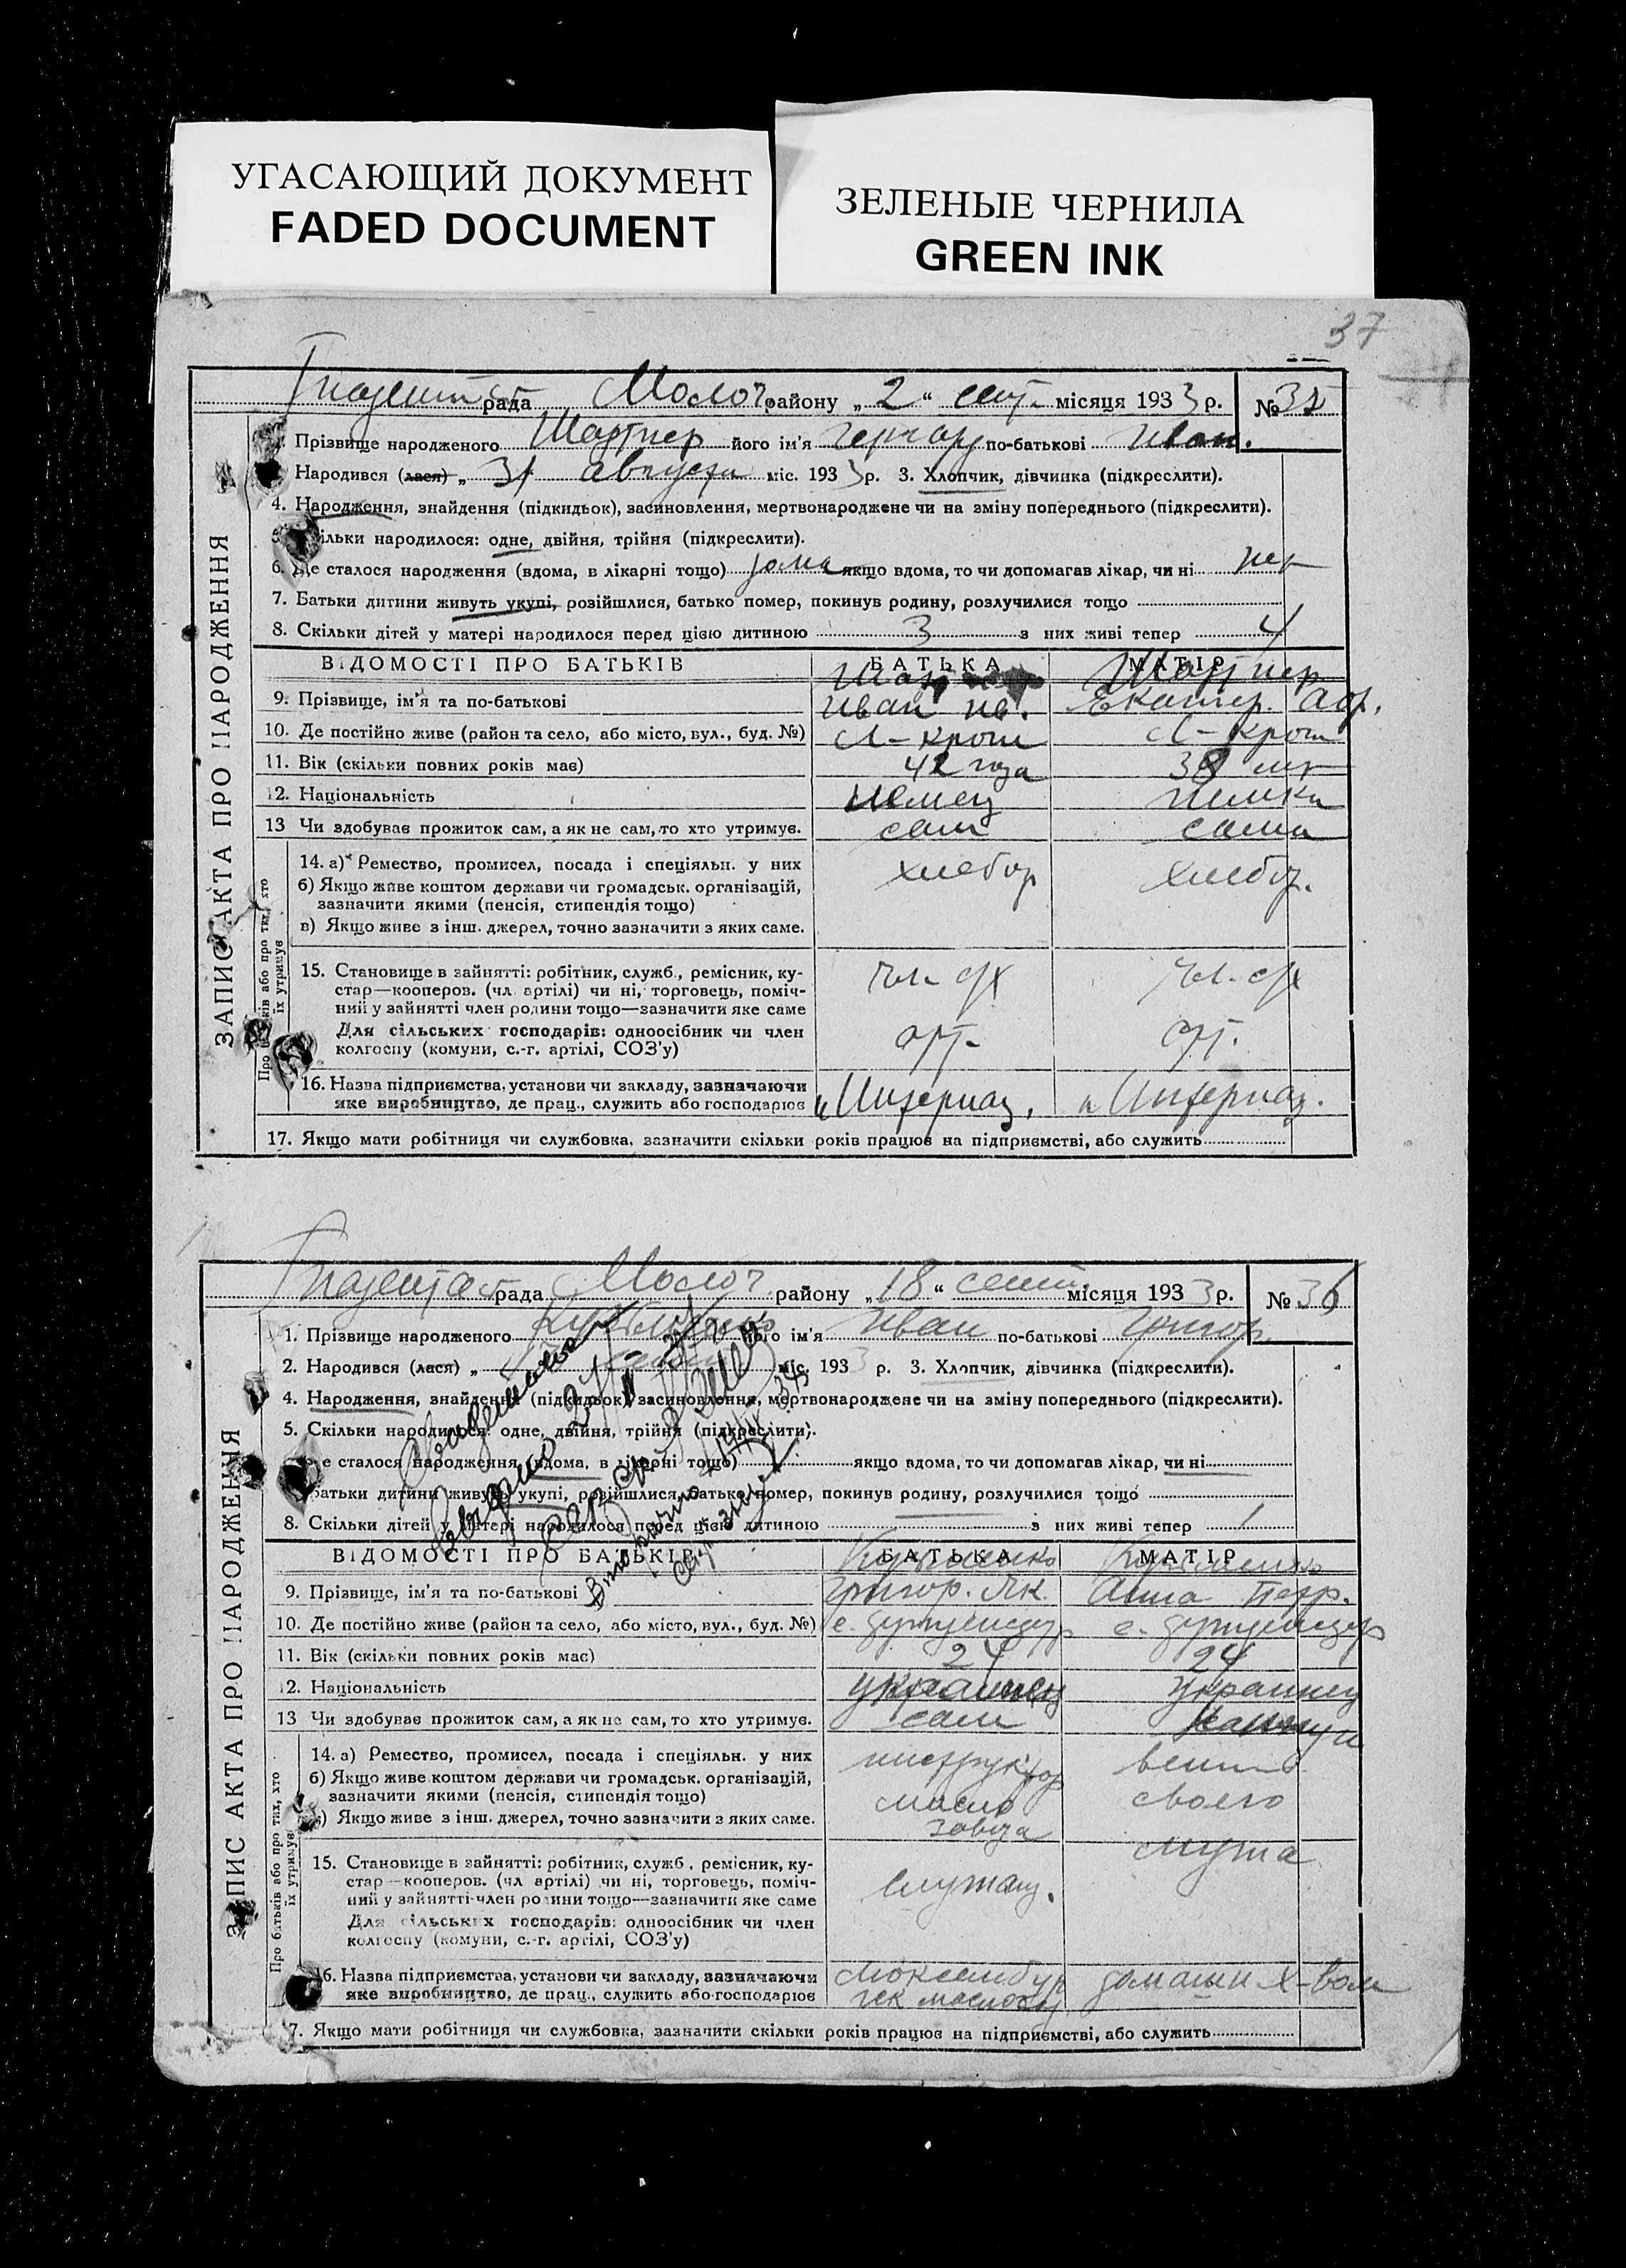 УГАСАЮЩИЙ ДОКУМЕНТ
FADED DOCUMENT
ЗЕЛЕНЫЕ ЧЕРНИЛА
GREEN INK
37
рада Молоч району „2“ сент. місяця 1933 р. № 35
Прізвище народженого його ім'я по-батькові Иван.
Народився (лася) „31 августа міс. 1933 р. 3. Хлопчик, дівчинка (підкреслити).
4. Народження, знайдення (підкидьок), засиновлення, мертвонароджене чи на зміну попереднього (підкреслити).
ільки народилося: одне, двійня, трійня (підкреслити).
6. Де сталося народження (вдома, в лікарні тощо) дома якщо вдома, то чи допомагав лікар, чи ні нет
7. Батьки дитини живуть укупі, розійшлися, батько помер, покинув родину, розлучилися тощо
8. Скільки дітей у матері народилося перед цією дитиною 3 з них живі тепер 4
ВІДОМОСТІ ПРО БАТЬКІВ БАТЬКА МАТІР
9. Прізвище, ім'я та по-батькові Иван Ив. Екатер.
10. Де постійно живе (район та село, або місто, вул., буд. №)
11. Вік (скільки повних років має) 42 года 38 лет
12. Національність немец немка
13 Чи здобуває прожиток сам, а як не сам, то хто утримує. сам сама
14. а) Ремество, промисел, посада і спеціяльн. у них хлебор хлебор.
б) Якщо живе коштом держави чи громадськ. організацій,
зазначити якими (пенсія, стипендія тощо)
в) Якщо живе з інш. джерел, точно зазначити з яких саме.
15. Становище в зайнятті: робітник, служб., ремісник, ку- чл. с/х чл. с/х
стар—кооперов. (чл. артілі) чи ні, торговець, поміч-
ний у зайнятті член родини тощо—зазначити яке саме
Для сільських господарів: одноосібник чи член арт. арт.
колгоспу (комуни, с.-г. артілі, СОЗ'у)
16. Назва підприємства, установи чи закладу, зазначаючи
яке виробництво, де прац., служить або господарює „Интернац. „Интернац.
17. Якщо мати робітниця чи службовка, зазначити скільки років працює на підприємстві, або служить
ЗАПИС АКТА ПРО НАРОДЖЕННЯ
рада Молоч району „18“ сент. місяця 1933 р. № 36
1. Прізвище народженого його ім'я Иван по-батькові Григор.
2. Народився (лася) „ міс. 1933 р. 3. Хлопчик, дівчинка (підкреслити).
4. Народження, знайдення (підкидьок) засиновлення, мертвонароджене чи на зміну попереднього (підкреслити).
5. Скільки народилося: одне, двійня, трійня (підкреслити).
е сталося народження (вдома, в лікарні тощо) якщо вдома, то чи допомагав лікар, чи ні
батьки дитини живуть укупі, розійшлися, батько помер, покинув родину, розлучилися тощо
8. Скільки дітей у матері народилося перед цією дитиною з них живі тепер 1
ВІДОМОСТІ ПРО БАТЬКІВ БАТЬКА МАТІР
9. Прізвище, ім'я та по-батькові Григор. Як. Анна Петр.
10. Де постійно живе (район та село, або місто, вул., буд. №)
11. Вік (скільки повних років має) 24 24
12. Національність украинец украинец
13 Чи здобуває прожиток сам, а як не сам, то хто утримує. сам
14. а) Ремество, промисел, посада і спеціяльн. у них инструктор
б) Якщо живе коштом держави чи громадськ. організацій,
зазначити якими (пенсія, стипендія тощо) масло своего
в) Якщо живе з інш. джерел, точно зазначити з яких саме. завода
15. Становище в зайнятті: робітник, служб., ремісник, ку- мужа
стар—кооперов. (чл артілі) чи ні, торговець, поміч- служащ.
ний у зайнятті член родини тощо—зазначити яке саме
Для сільських господарів: одноосібник чи член
колгоспу (комуни, с.-г. артілі, СОЗ'у)
16. Назва підприємства, установи чи закладу, зазначаючи домашн х-вом
яке виробництво, де прац., служить або господарює
17. Якщо мати робітниця чи службовка, зазначити скільки років працює на підприємстві, або служить
Про батьків або про тих, хто їх утримує
ЗАПИС АКТА ПРО НАРОДЖЕННЯ